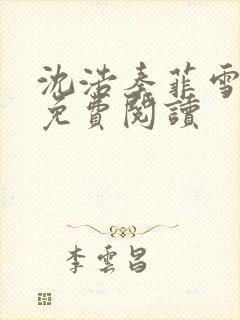 沈浩秦菲雪
免費閱讀
李雲昌